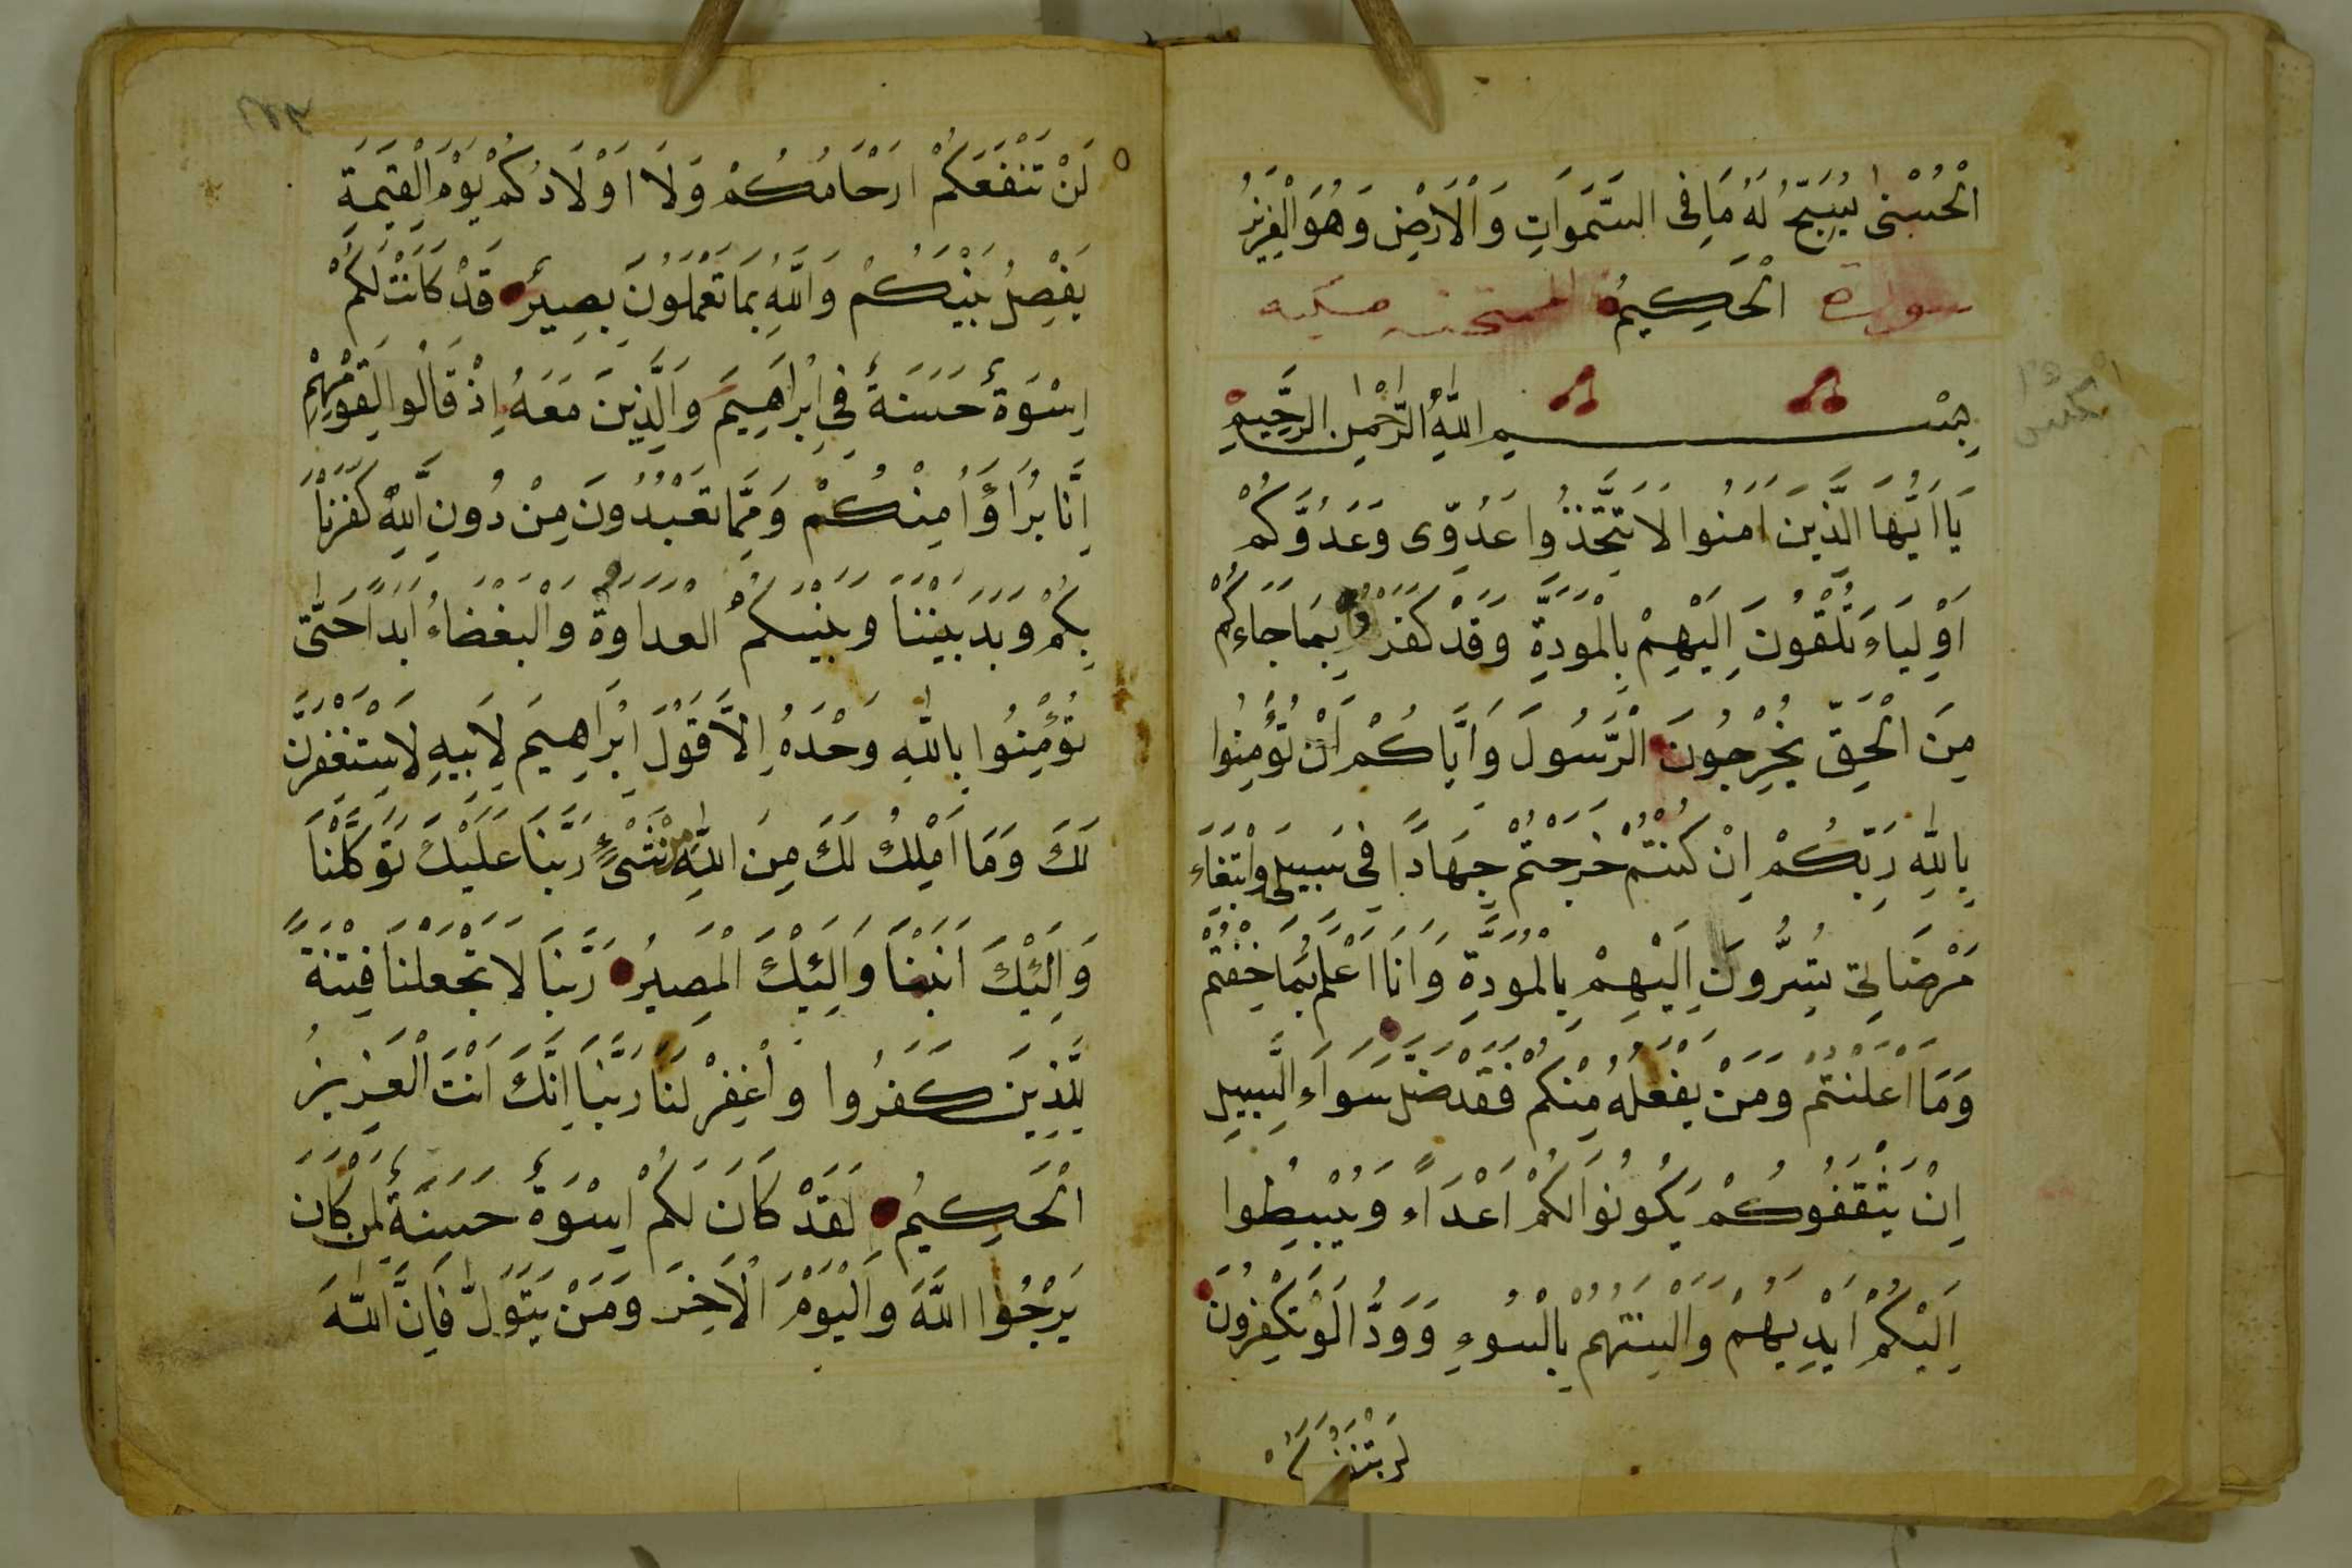 الْحُسْنٰى يُسَبِّحُ لَهُ مَا فِى السَّمَوَاتِ وَالْاَرْضِ وَهُوَ الْعَزِيْزُ
سورة الْحَكِيمُ الممتحنه مكيه
بِسْمِ اللّٰهِ الرَّحْمٰنِ الرَّحِيمِ
يَا اَيُّهَا الَّذِينَ اَمَنُوا لَا تَتَّخِذُوا عَدُوِّى وَعَدُوَّكُمْ
اَوْلِيَاءَ تُلْقُونَ اِلَيْهِمْ بِالْمَوَدَّةِ وَقَدْ كَفَرُوْا بِمَا جَاءَكُمْ
مِنَ الْحَقِّ يُخْرِجُونَ الرَّسُولَ وَاِيَّاكُمْ اَنْ تُؤْمِنُوا
بِاللّٰهِ رَبِّكُمْ اِنْ كُنْتُمْ خَرَجْتُمْ جِهَادًا فِى سَبِيلِى وَابْتِغَاءَ
مَرْضَاتِى تُسِرُّونَ اِلَيْهِمْ بِالْمَوَدَّةِ وَاَنَا اَعْلَمُ بِمَا اَخْفَيْتُمْ
وَمَا اَعْلَنْتُمْ وَمَنْ يَفْعَلْهُ مِنْكُمْ فَقَدْ ضَلَّ سَوَاءَ السَّبِيلِ
اِنْ يَثْقَفُوكُمْ يَكُونُوا لَكُمْ اَعْدَاءً وَيَبْسُطُوا
اِلَيْكُمْ اَيْدِيَهُمْ وَاَلْسِنَتَهُمْ بِالسُّوءِ وَوَدُّوا لَوْ تَكْفُرُونَ
لَنْ تَنْفَعَكُمْ
لَنْ تَنْفَعَكُمْ اَرْحَامُكُمْ وَلَا اَوْلَادُكُمْ يَوْمَ الْقِيٰمَةِ
يَفْصِلُ بَيْنَكُمْ وَاللّٰهُ بِمَا تَعْمَلُونَ بَصِيرٌ قَدْ كَانَتْ لَكُمْ
اِسْوَةٌ حَسَنَةٌ فِى اِبْرَاهِيمَ وَالَّذِينَ مَعَهُ اِذْ قَالُوا لِقَوْمِهِمْ
اِنَّا بُرَاؤُا مِنْكُمْ وَمِمَّا تَعْبُدُونَ مِنْ دُونِ اللّٰهِ كَفَرْنَا
بِكُمْ وَبَدَ بَيْنَنَا وَبَيْنَكُمُ الْعَدَاوَةُ وَالْبَغْضَاءُ اَبَدًا حَتّٰى
تُؤْمِنُوا بِاللّٰهِ وَحْدَهُ اِلَّا قَوْلَ اِبْرَاهِيمَ لِاَبِيهِ لَاَسْتَغْفِرَنَّ
لَكَ وَمَا اَمْلِكُ لَكَ مِنَ اللّٰهِ مِنْ شَىْءٍ رَبَّنَا عَلَيْكَ تَوَكَّلْنَا
وَاِلَيْكَ اَنَبْنَا وَاِلَيْكَ الْمَصِيرُ رَبَّنَا لَا تَجْعَلْنَا فِتْنَةً
لِلَّذِينَ كَفَرُوا وَاغْفِرْ لَنَا رَبَّنَا اِنَّكَ اَنْتَ الْعَزِيزُ
الْحَكِيمُ لَقَدْ كَانَ لَكُمْ اِسْوَةٌ حَسَنَةٌ لِمَنْ كَانَ
يَرْجُوا اللّٰهَ وَالْيَوْمَ الْاَخِرَ وَمَنْ يَتَوَلَّ فَاِنَّ اللّٰهَ